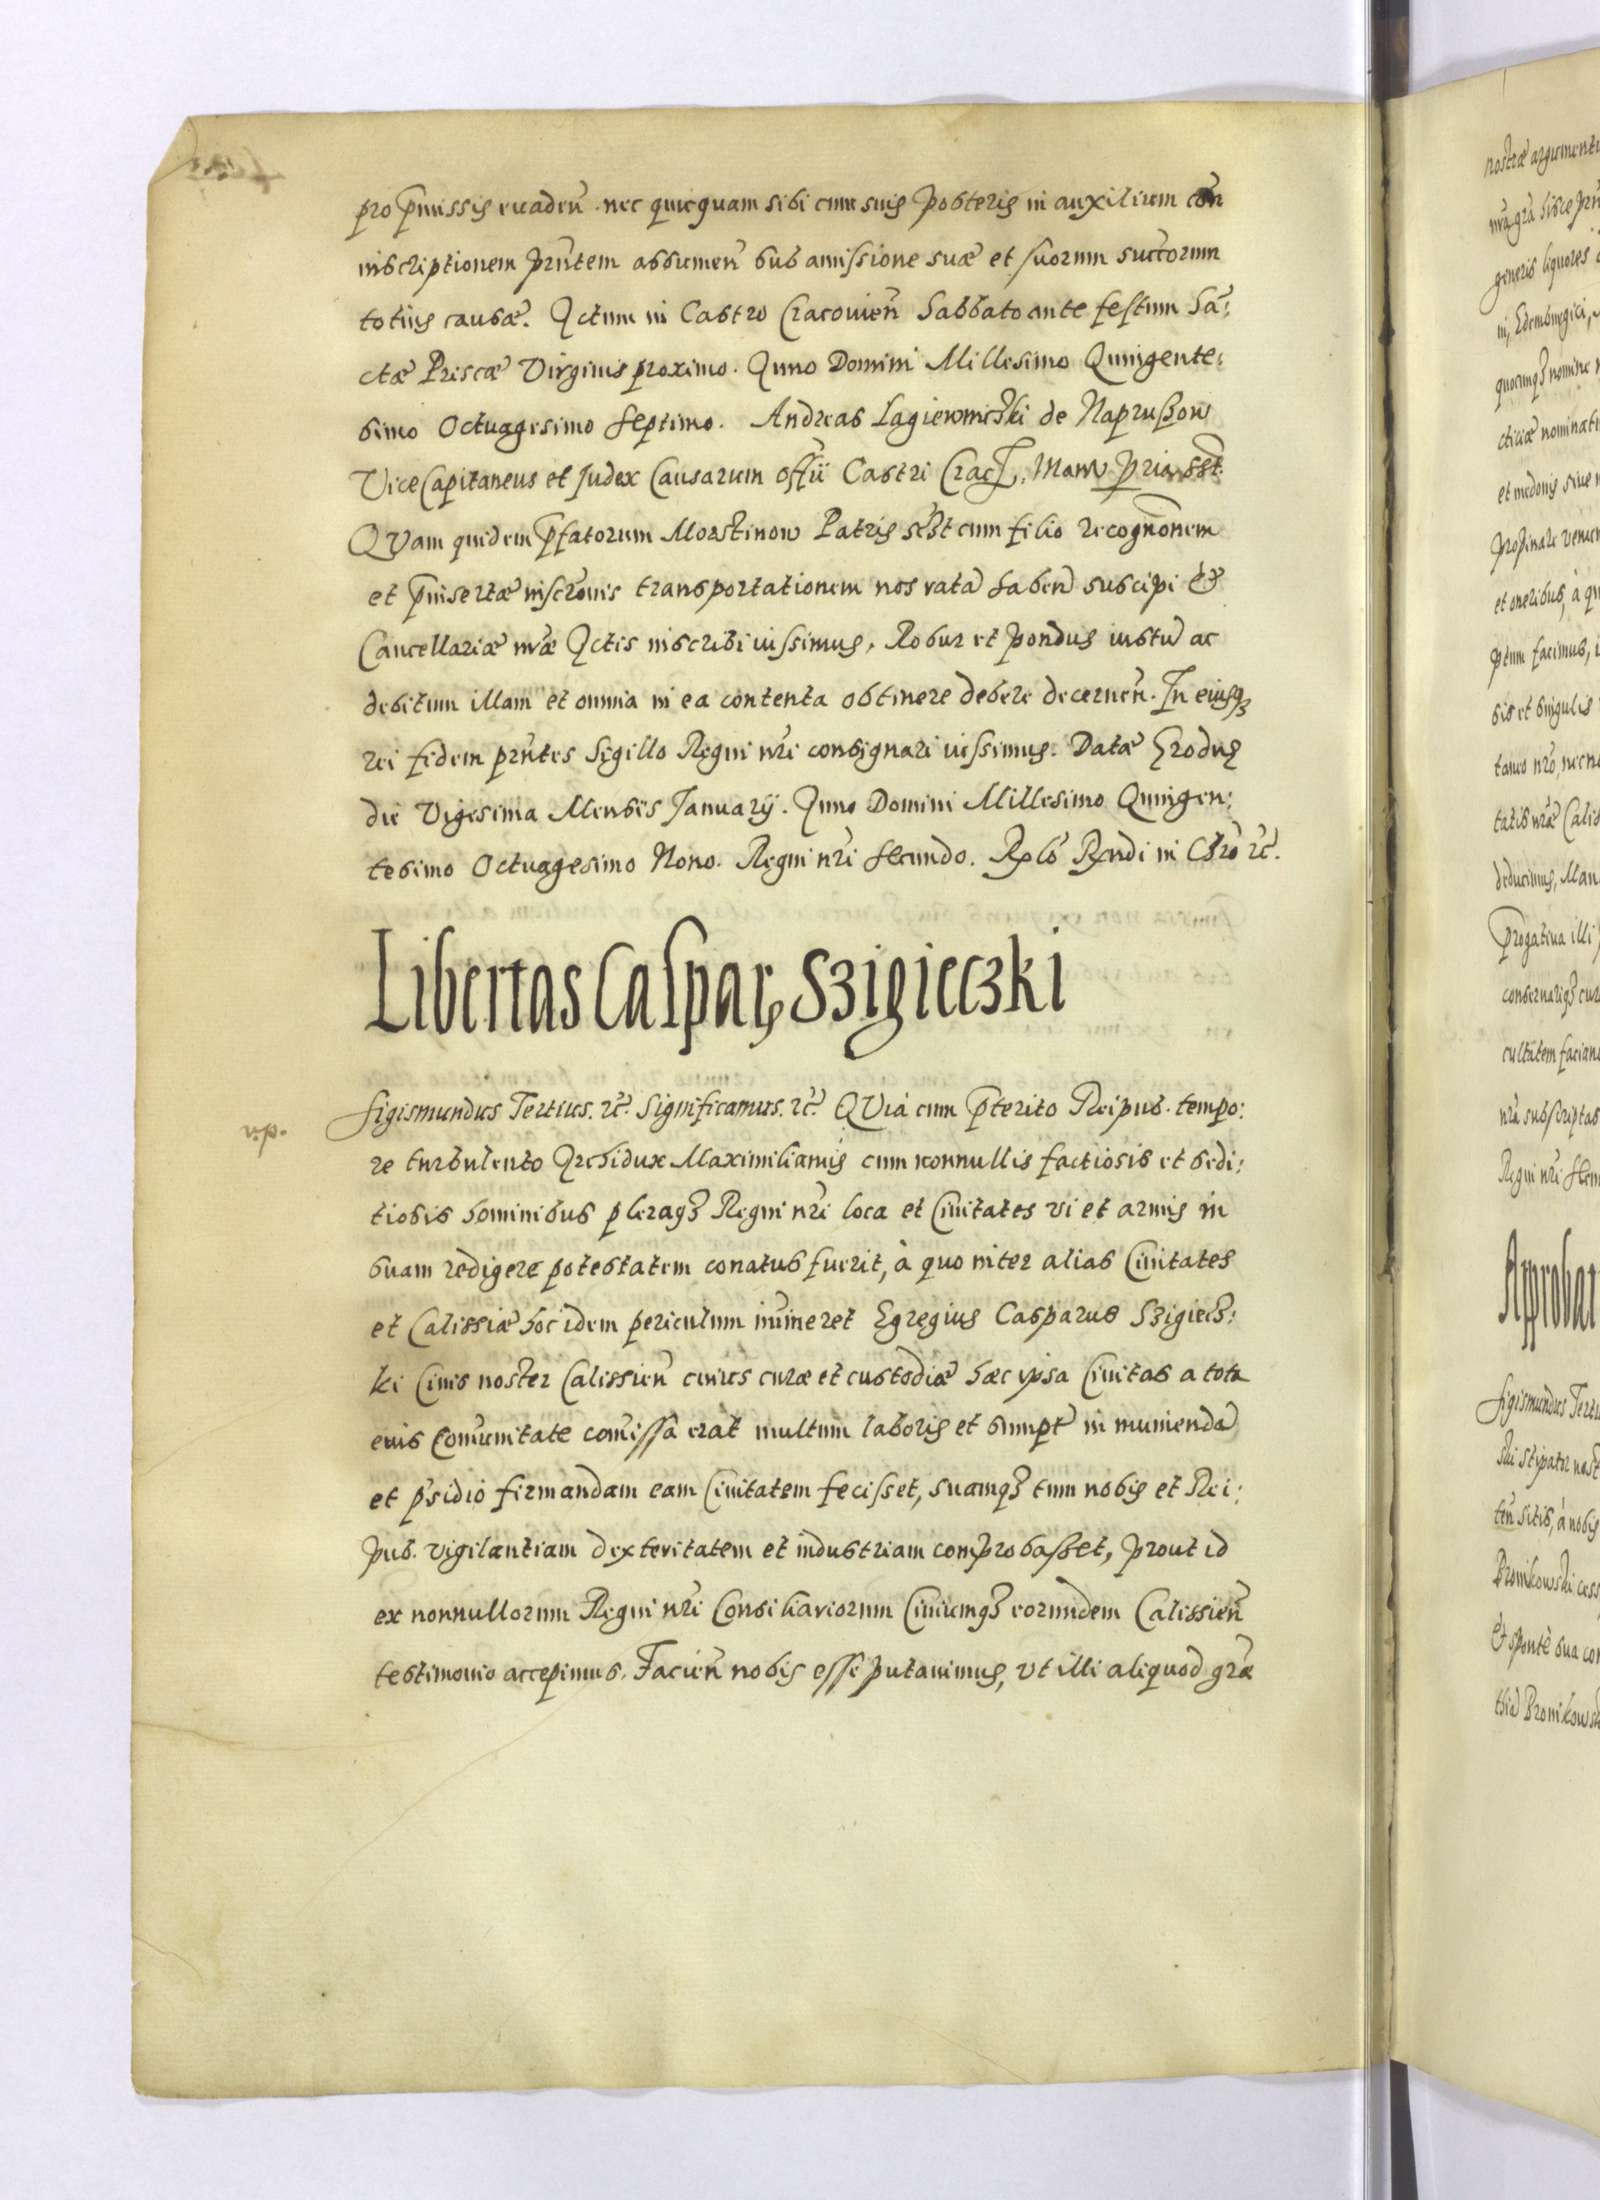 pro p̃missis euadeñ. nec quicquam sibi cum suis posteris in auxilium con
inscriptionem prñtem assumeñ sub amissione suæ et suorum succorum
totius causæ. Actum in Castro Cracouieñ Sabbato ante festum Sã:
ctæ Priscæ Virginis proximo. Anno Domini Millesimo Quingente:
simo Octuagesimo septimo. Andreas Lagiewniczki de Naprußow
ViceCapitaneus et Judex Causarum Offii Castri Crac̃, Manu ꝓpria sst.
QVam quidem p̃fatorum Morstinow Patris scʒt cum filio recognõnem
et p̃insertæ inscrõnis transportationem nos ratã habeñ suscipi et
Cancellariæ nr̃æ Actis inscribi iussimus, Robur et pondus iustũ ac
debitum illam et omnia in ea contenta obtinere debere decerneñ. In eiusqʒ
rei fidem prñtes Sigillo Regni nr̃i consignari iussimus. Datæ Grodnæ
die Vigesima Mensis Januarij. Anno Domini Millesimo Quingen:
tesimo Octuagesimo Nono. Regni nr̃i secundo.
Libertas Caspar, Szigieczki
v.p.
Sigismundus Tertius. rč. Significamus. rč. QVia cum p̃terito Reipub. tempo:
re turbulento Archidux Maximilianus cum nonnullis factiosis et sedi:
tiosis hominibus plerasqʒ Regni nr̃i loca et Ciuitates vi et armis in
suam redigere potestatem conatus fuerit, à quo inter alias Ciuitates
et Calissiæ hoc idem periculum im̃ineret Egregius Casparus Szigiecz:
ki Ciuis noster Calissieñ cuius curæ et custodiæ hæc ipsa Ciuitas a tota
eius Com̃unitate com̃issa erat multum laboris et sumpt in muniendã
et p̃sidio firmandam eam Ciuitatem fecisset, suamqʒ tum nobis et Rei:
pub. vigilantiam dexteritatem et industriam comprobasset, prout id
ex nonnullorum Regni nr̃i Consiliariorum Ciuiumqʒ eorundem Calissieñ
testimonio accepimus. Facieñ nobis esse putauimus, vt illi aliquod gr̃æ
nostræ argumentu
generis liquores
quocunqʒ nomine
cticiæ nominati
et medonis siue
propinare
et oneribus, à qu
ptum facimus,
sis et singulis
tatis nr̃æ Calis
deducimus, Man
p̃rogatiua illi
conseruariqʒ cur
cultatem facian
nr̃a subscriptas
Regni nr̃i secu
Approbat
Sigismundus Tertiu
Bronikowski cess
Et sponte sua con
Bronikowsk